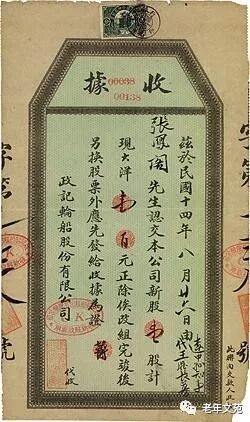 收據
00038
00138
茲於民國十四年八月廿八日由
張鳳閣先生認交本公司新股壹股計
現大洋壹百元正除俟改組完竣後
另換股票外應先發給收據為證
政記輪船股份有限公司
代收
字第
號
老年文苑